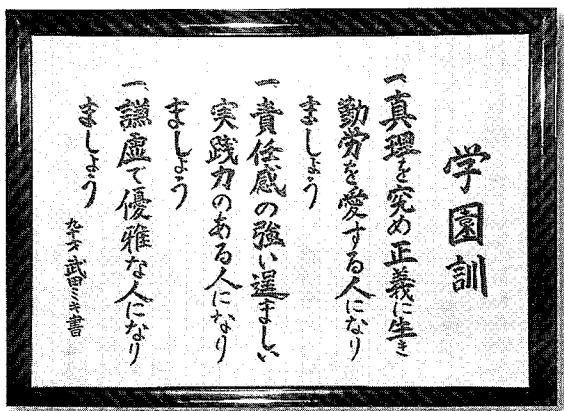 学園訓
一、真理を究め正義に生き
勤労を愛する人になり
ましょう
一、責任感の強い逞ましい
実践力のある人になり
ましょう
一、謙虚で優雅な人になり
ましょう
九十才 武田ミキ書